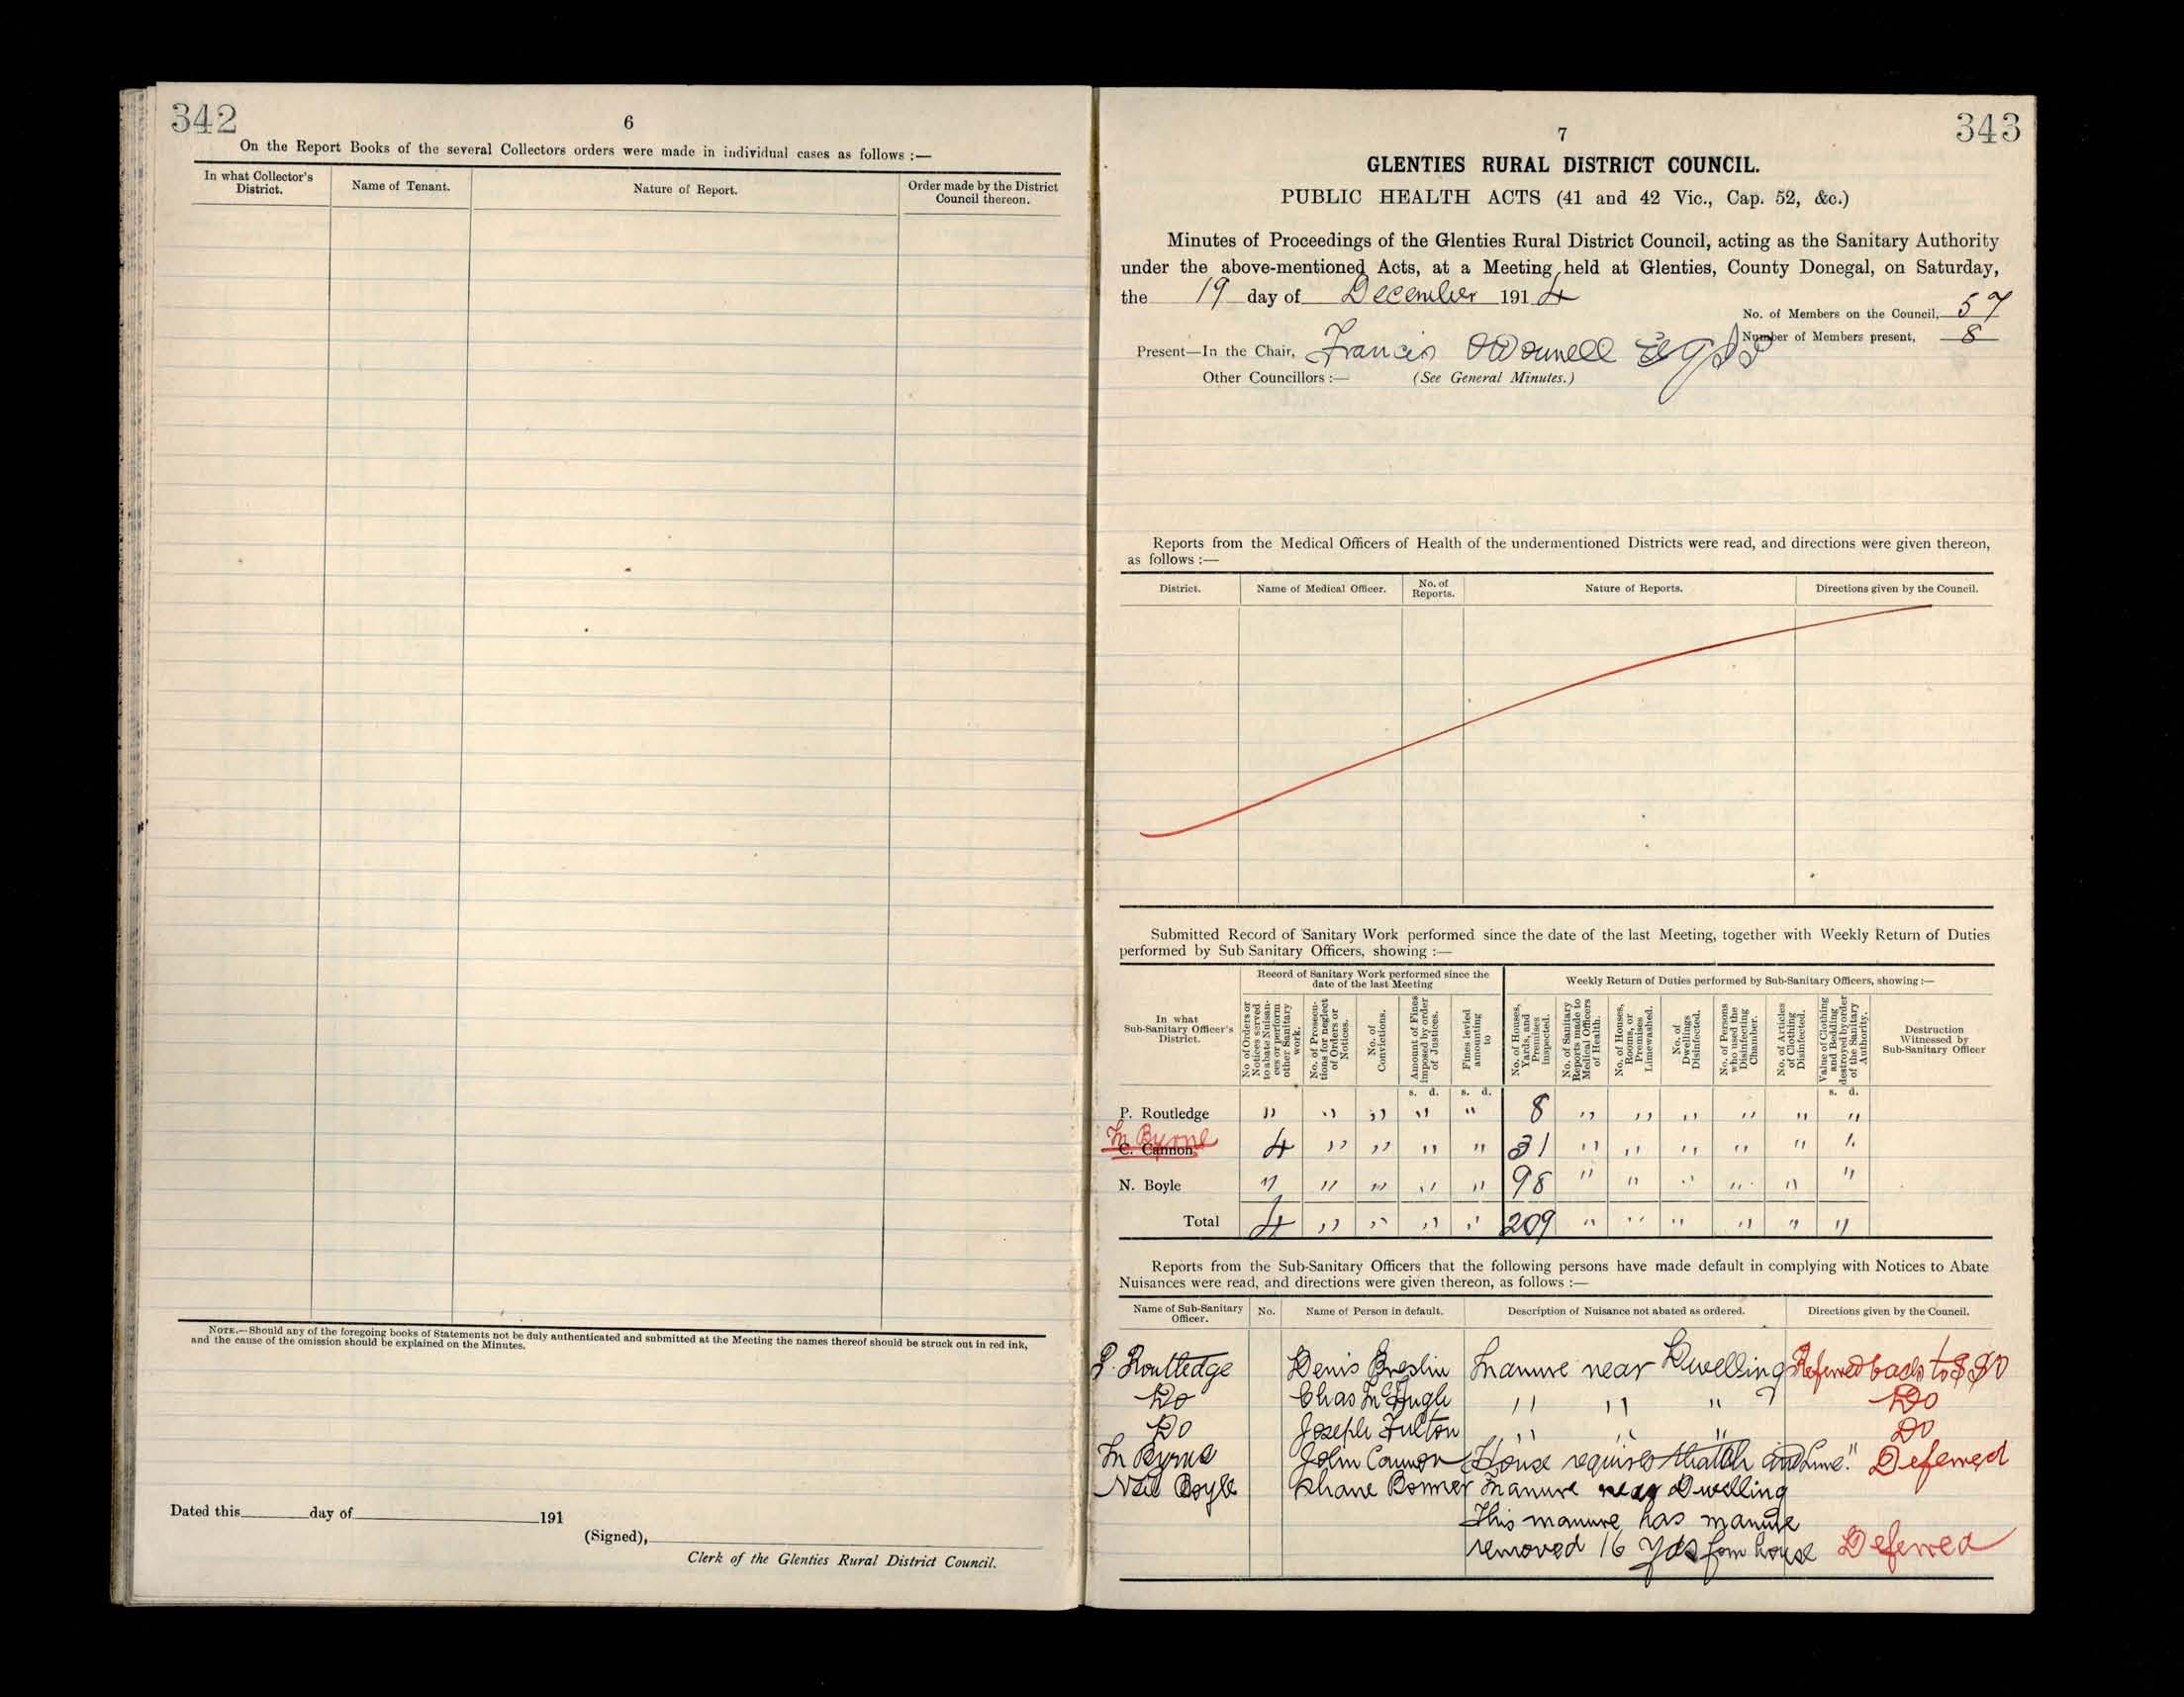 342
6
On the Report Books of the several Collectors orders were made in individual cases as follows :—
In what Collector's District.
Name of Tenant.
Nature of Report.
Order made by the District Council thereon.
NOTE.—Should any of the foregoing books of Statements not be duly authenticated and submitted at the Meeting the names thereof should be struck out in red ink,
and the cause of the omission should be explained on the Minutes.
Dated this day of 191
(Signed),
Clerk of the Glenties Rural District Council.
343
7
GLENTIES RURAL DISTRICT COUNCIL.
PUBLIC HEALTH ACTS (41 and 42 Vic., Cap. 52, &c.)
Minutes of Proceedings of the Glenties Rural District Council, acting as the Sanitary Authority
under the above-mentioned Acts, at a Meeting held at Glenties, County Donegal, on Saturday,
the 19 day of December 1914
No. of Members on the Council, 57
Number of Members present, 8
Present—In the Chair, Francis O'Donnell Esq
Other Councillors :— (See General Minutes.)
Reports from the Medical Officers of Health of the undermentioned Districts were read, and directions were given thereon,
as follows :—
District.
Name of Medical Officer.
No. of Reports.
Nature of Reports.
Directions given by the Council.
Submitted Record of Sanitary Work performed since the date of the last Meeting, together with Weekly Return of Duties
performed by Sub Sanitary Officers, showing :—
Record of Sanitary Work performed since the date of the last Meeting
Weekly Return of Duties performed by Sub-Sanitary Officers, showing :—
In what Sub-Sanitary Officer's District.
No of Orders or Notices served to abate Nuisances or perform other Sanitary work.
No. of Prosecutions for neglect of Orders or Notices.
No. of Convictions.
Amount of Fines imposed by order of Justices.
Fines levied amounting to
No. of Houses, Yards, and Premises inspected.
No. of Sanitary Reports made to Medical Officers of Health.
No. of Houses, Rooms, or Premises Limewashed.
No. of Dwellings Disinfected.
No. of Persons who used the Disinfecting Chamber.
No. of Articles of Clothing Disinfected.
Value of Clothing and Bedding destroyed by order of the Sanitary Authority.
Destruction Witnessed by Sub-Sanitary Officer
s. d. s. d. s. d.
P. Routledge " " " " " 8 " " " " " "
M Byrne
C. Cannon 4 " " " " 31 " " " " " "
N. Boyle " " " " " 98 " " " " " "
Total 4 " " " " 209 " " " " " "
Reports from the Sub-Sanitary Officers that the following persons have made default in complying with Notices to Abate
Nuisances were read, and directions were given thereon, as follows :—
Name of Sub-Sanitary Officer.
No.
Name of Person in default.
Description of Nuisance not abated as ordered.
Directions given by the Council.
P. Routledge Denis Breslin Manure near Dwelling Referred back to
Do Chas McHugh " " " Do
Do Joseph Fulton " " " Do
M Byrne John Cannon House requires thatch and Lime." Deferred
Neil Boyle Shane Bonner Manure near Dwelling
This manure has manure
removed 16 yds from house Deferred